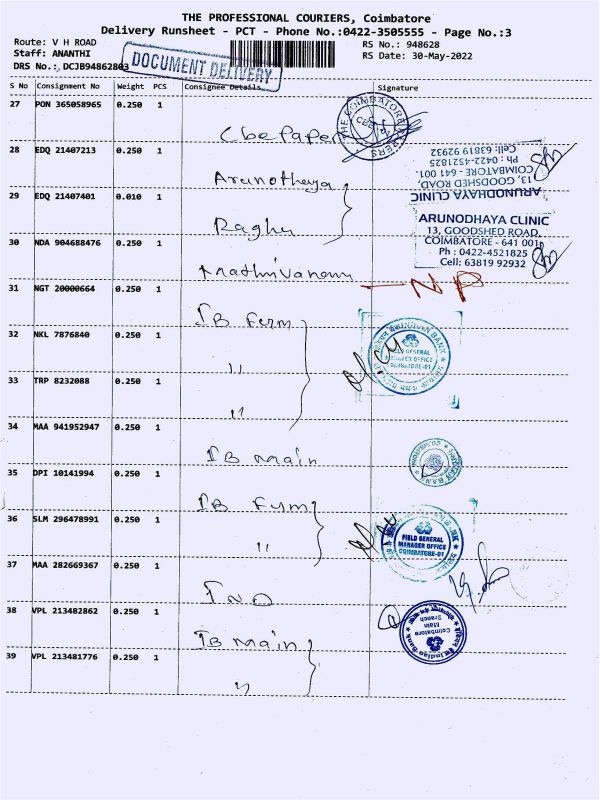 THE PROFESSIONAL COURIERS, Coimbatore
Delivery Runsheet - PCT - Phone No.:0422-3505555 - Page No.:3
Route: V H ROAD RS No.: 948628
Staff: ANANTHI RS Date: 30-May-2022
DRS No.: DCJB94862803 DOCUMENT DELIVERY
S No Consignment No Weight PCS Consignee Details Signature
27 PON 365058965 0.250 1
Cbe Paper
THE COIMBATORE PAPERS
28 EDQ 21407213 0.250 1
Arunothaya
ARUNODHAYA CLINIC
13, GOODSHED ROAD,
COIMBATORE - 641 001.
Ph : 0422-4521825
Cell: 63819 92932
29 EDQ 21407401 0.010 1
Raghu
ARUNODHAYA CLINIC
13, GOODSHED ROAD,
COIMBATORE - 641 001
Ph : 0422-4521825
Cell: 63819 92932
30 NDA 904688476 0.250 1
Mathivanan
31 NGT 20000664 0.250 1
NP
IB
32 NKL 7876840 0.250 1
"
INDIAN BANK
FIELD GENERAL
MANAGER OFFICE
COIMBATORE-01
33 TRP 8232088 0.250 1
"
34 MAA 941952947 0.250 1
IB main
35 DPI 10141994 0.250 1
IB
36 SLM 296478991 0.250 1
"
FIELD GENERAL
MANAGER OFFICE
COIMBATORE-01
37 MAA 282669367 0.250 1
38 VPL 213482862 0.250 1
IB main
Indian Bank
Coimbatore
Main
Branch
39 VPL 213481776 0.250 1
"